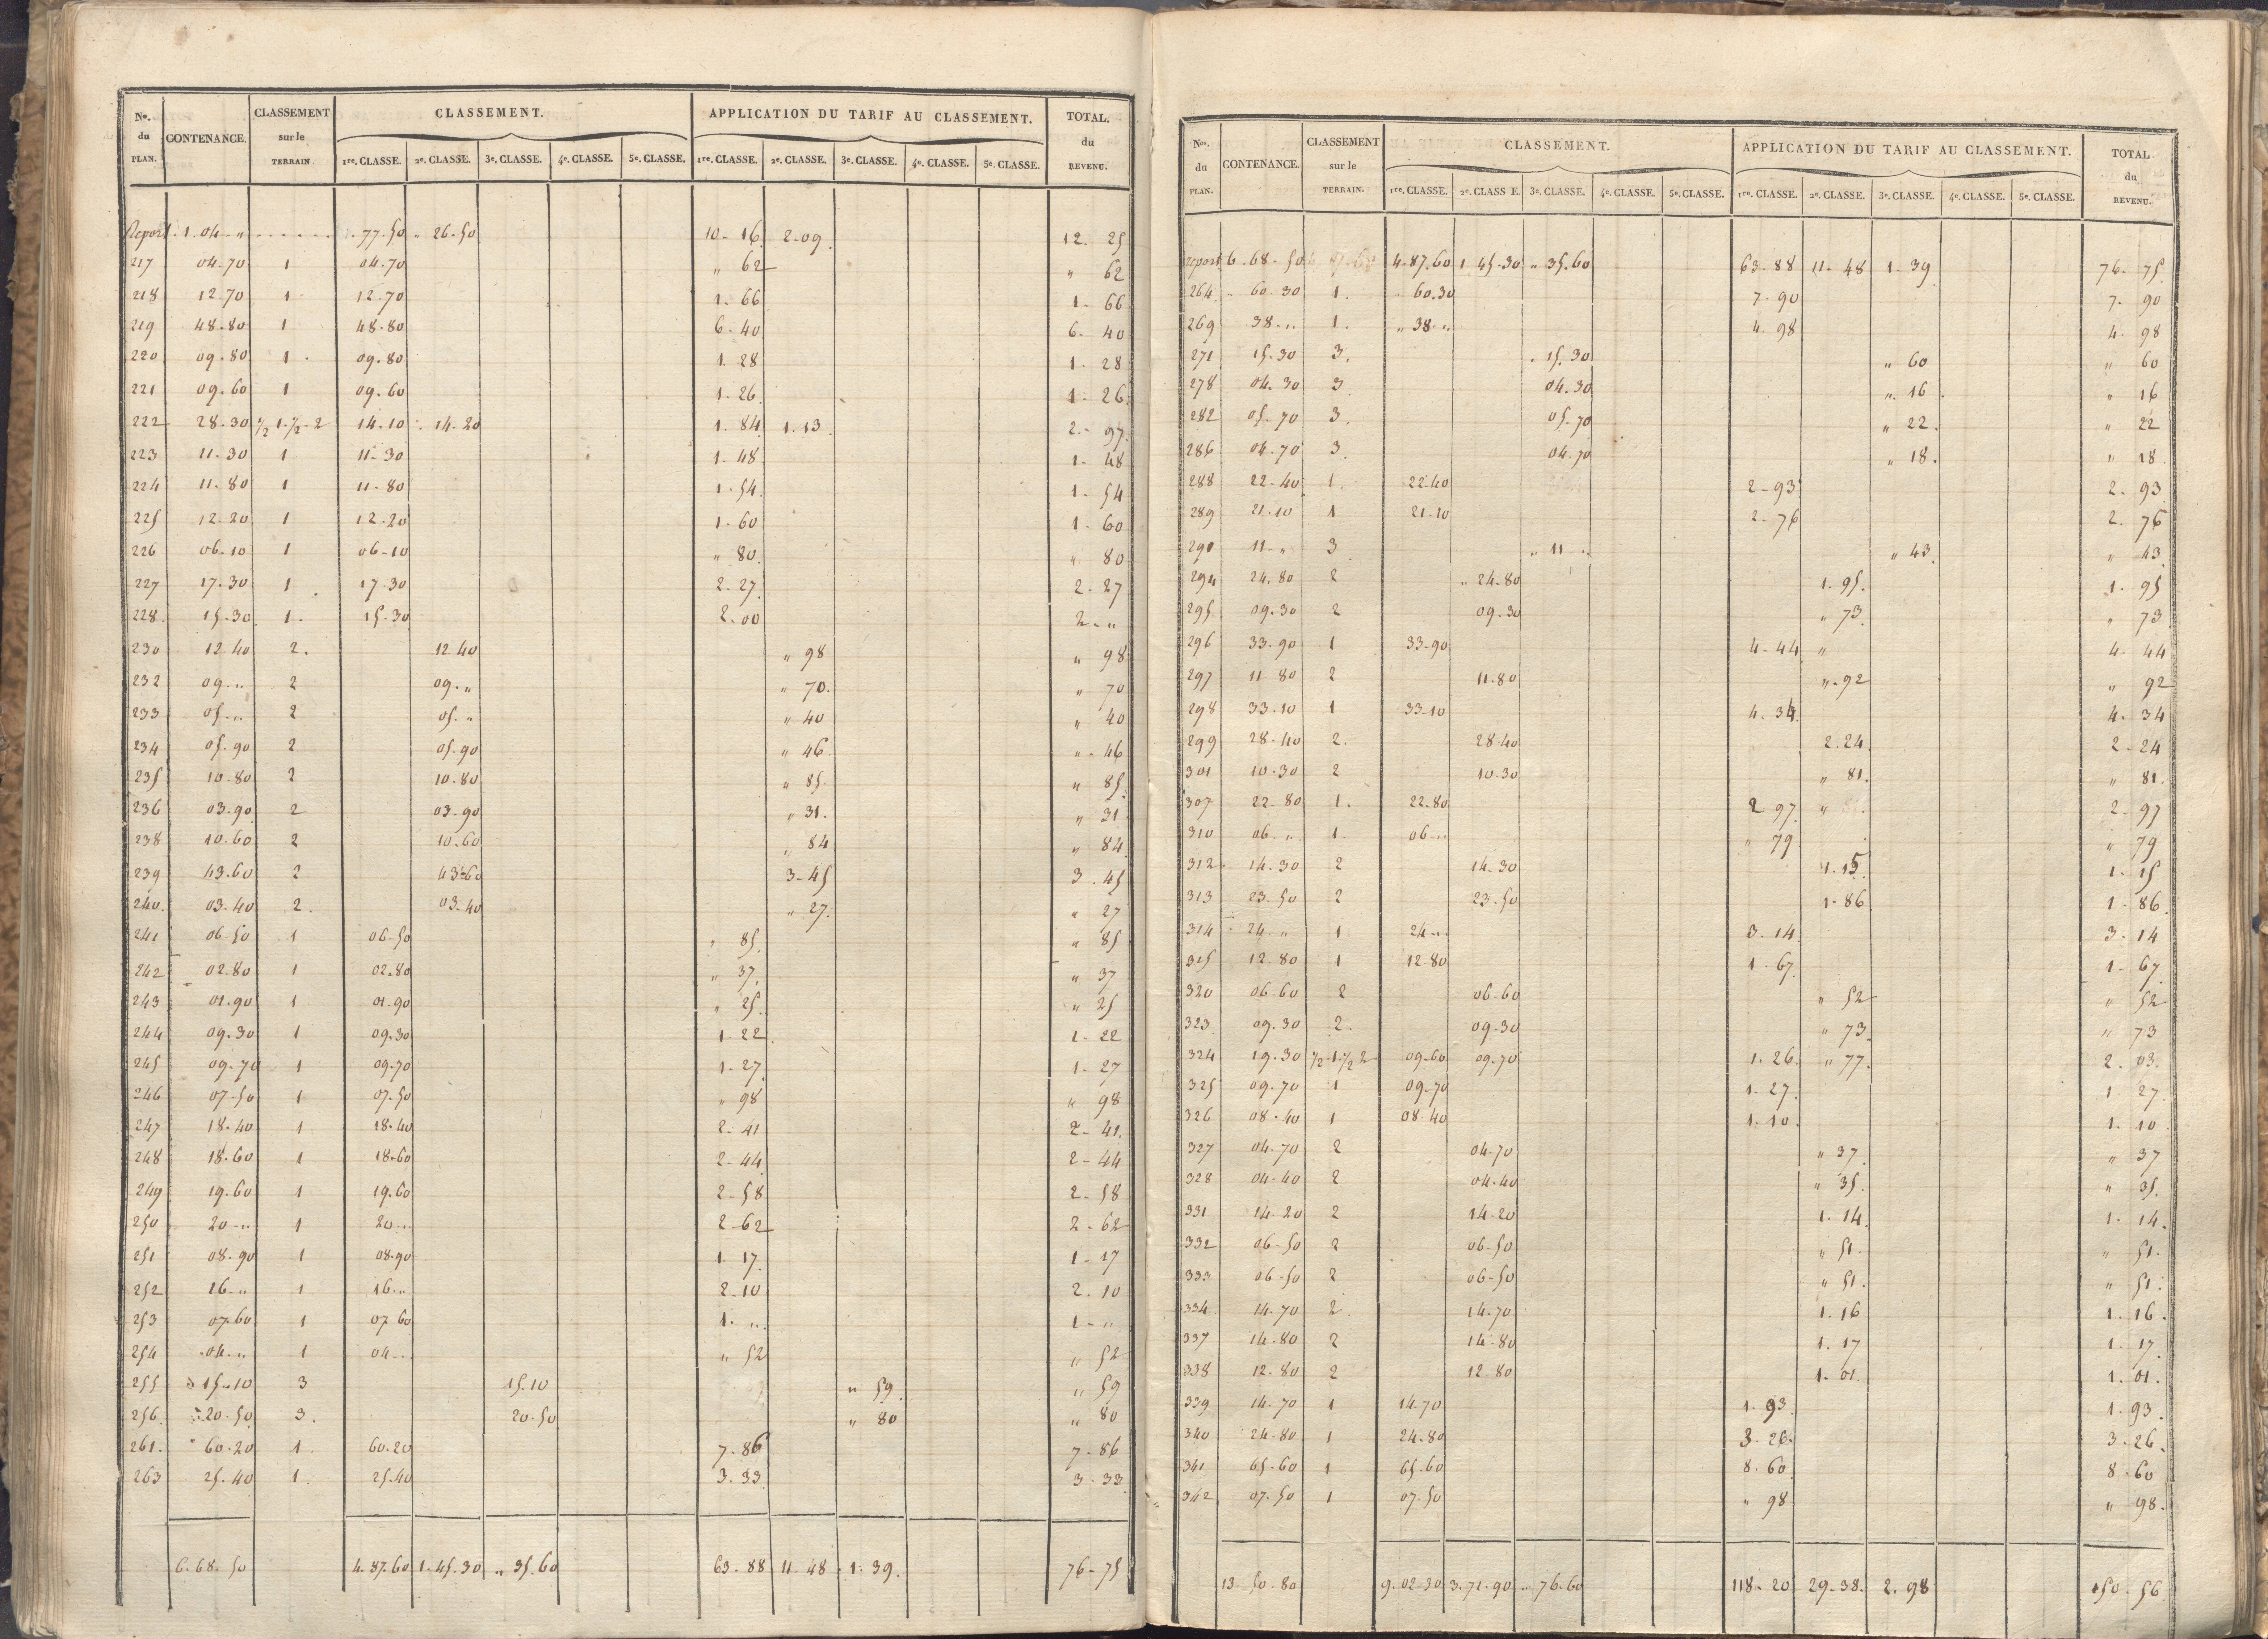 No. du PLAN. CONTENANCE. CLASSEMENT sur le TERRAIN. CLASSEMENT. APPLICATION DU TARIF AU CLASSEMENT. TOTAL. du REVENU.
1re. CLASSE. 2e. CLASSE. 3e. CLASSE. 4e. CLASSE. 5e. CLASSE. 1re. CLASSE. 2e. CLASSE. 3e. CLASSE. 4e. CLASSE. 5e. CLASSE.
Report 1. 04 " 77-50 " 26-50 10-16 2-09 12-25
217 04-70 1 04-70 " 62 " 62
218 12-70 1 12-70 1-66 1-66
219 48-80 1 48-80 6-40 6-40
220 09-80 1 09-80 1-28 1-28
221 09-60 1 09-60 1-26 1-26
222 28-30 1/2 1-1/2-2 14-10 14-20 1-84 1-13 2-97
223 11-30 1 11-30 1-48 1-48
224 11-80 1 11-80 1-54 1-54
225 12-20 1 12-20 1-60 1-60
226 06-10 1 06-10 " 80 " 80
227 17-30 1 17-30 2-27 2-27
228 15-30 1 15-30 2-00 2-"
230 12-40 2 12-40 " 98 " 98
232 09-" 2 09-" " 70 " 70
233 05-" 2 05-" " 40 " 40
234 05-90 2 05-90 " 46 " 46
235 10-80 2 10-80 " 85 " 85
236 03-90 2 03-90 " 31 " 31
238 10-60 2 10-60 " 84 " 84
239 43-60 2 43-60 3-45 3-45
240 03-40 2 03-40 " 27 " 27
241 06-50 1 06-50 " 85 " 85
242 02-80 1 02-80 " 37 " 37
243 01-90 1 01-90 " 25 " 25
244 09-30 1 09-30 1-22 1-22
245 09-70 1 09-70 1-27 1-27
246 07-50 1 07-50 " 98 " 98
247 18-40 1 18-40 2-41 2-41
248 18-60 1 18-60 2-44 2-44
249 19-60 1 19-60 2-58 2-58
250 20-" 1 20-" 2-62 2-62
251 08-90 1 08-90 1-17 1-17
252 16-" 1 16-" 2-10 2-10
253 07-60 1 07-60 1-" 1-"
254 04-" 1 04-" " 52 " 52
255 15-10 3 15-10 " 59 " 59
256 20-50 3 20-50 " 80 " 80
261 60-20 1 60-20 7-86 7-86
263 25-40 1 25-40 3-33 3-33
6-68-50 4-87-60 1-45-30 " 35-60 63-88 11-48 1-39 76-75
Nos. du PLAN. CONTENANCE. CLASSEMENT sur le TERRAIN. CLASSEMENT. APPLICATION DU TARIF AU CLASSEMENT. TOTAL du REVENU.
1re. CLASSE. 2e. CLASSE. 3e. CLASSE. 4e. CLASSE. 5e. CLASSE. 1re. CLASSE. 2e. CLASSE. 3e. CLASSE. 4e. CLASSE. 5e. CLASSE.
report 6-68-50 4-87-60 1-45-30 " 35-60 63-88 11-48 1-39 76-75
264 60-30 1 60-30 7-90 7-90
269 38-" 1 " 38-" 4-98 4-98
271 15-30 3 15-30 " 60 " 60
278 04-30 3 04-30 " 16 " 16
282 05-70 3 05-70 " 22 " 22
286 04-70 3 04-70 " 18 " 18
288 22-40 1 22-40 2-93 2-93
289 21-10 1 21-10 2-76 2-76
290 11-" 3 " 11-" " 43 " 43
294 24-80 2 " 24-80 1-95 1-95
295 09-30 2 09-30 " 73 " 73
296 33-90 1 33-90 4-44 " 4-44
297 11-80 2 11-80 " 92 " 92
298 33-10 1 33-10 4-34 4-34
299 28-40 2 28-40 2-24 2-24
301 10-30 2 10-30 " 81 " 81
307 22-80 1 22-80 2-97 " 2-97
310 06-" 1 06-" " 79 " 79
312 14-30 2 14-30 1-15 1-15
313 23-50 2 23-50 1-86 1-86
314 24-" 1 24-" 3-14 3-14
315 12-80 1 12-80 1-67 1-67
320 06-60 2 06-60 " 52 " 52
323 09-30 2 09-30 " 73 " 73
324 19-30 1/2-1-1/2 2 09-60 09-70 1-26 " 77 2-03
325 09-70 1 09-70 1-27 1-27
326 08-40 1 08-40 1-10 1-10
327 04-70 2 04-70 " 37 " 37
328 04-40 2 04-40 " 35 " 35
331 14-20 2 14-20 1-14 1-14
332 06-50 2 06-50 " 51 " 51
333 06-50 2 06-50 " 51 " 51
334 14-70 2 14-70 1-16 1-16
337 14-80 2 14-80 1-17 1-17
338 12-80 2 12-80 1-01 1-01
339 14-70 1 14-70 1-93 1-93
340 24-80 1 24-80 3-26 3-26
341 65-60 1 65-60 8-60 8-60
342 07-50 1 07-50 " 98 " 98
13-50-80 9-02-30 3-71-90 " 76-60 118-20 29-38 2-98 150-56